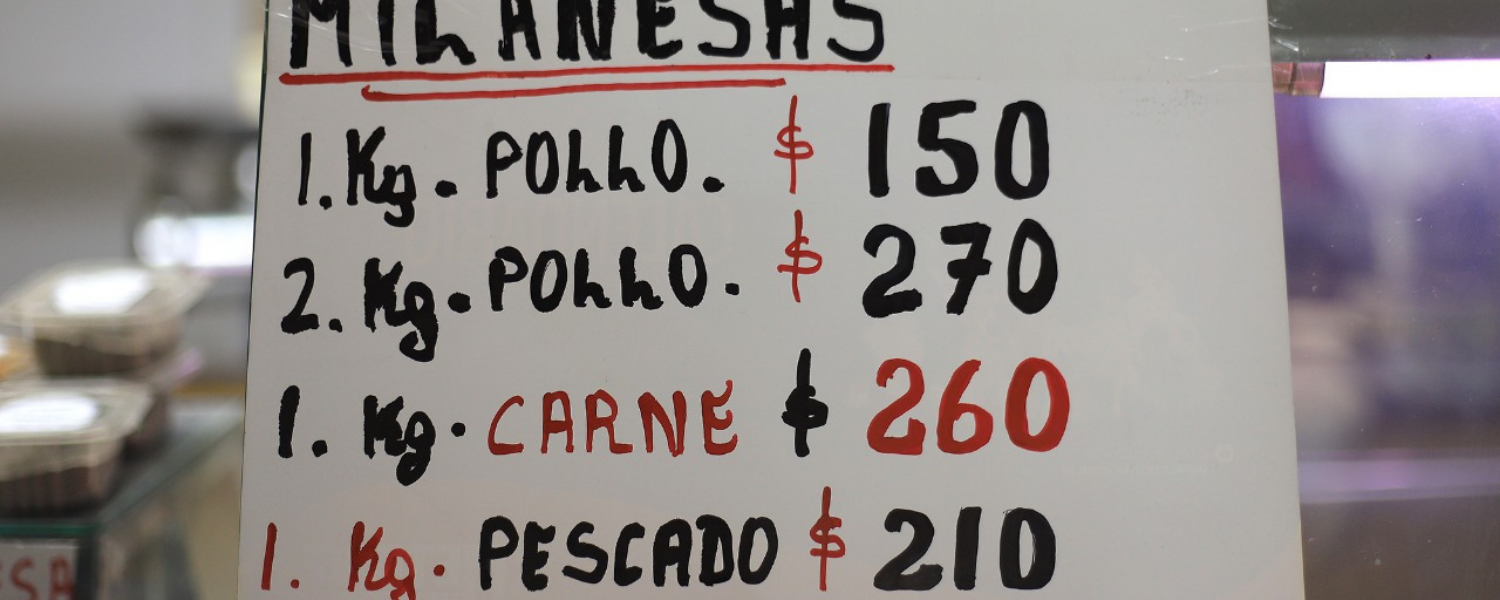 MILANESAS
1. Kg. POLLO. $ 150
2. Kg. POLLO. $ 270
1. Kg. CARNE $ 260
1. Kg. PESCADO $ 210